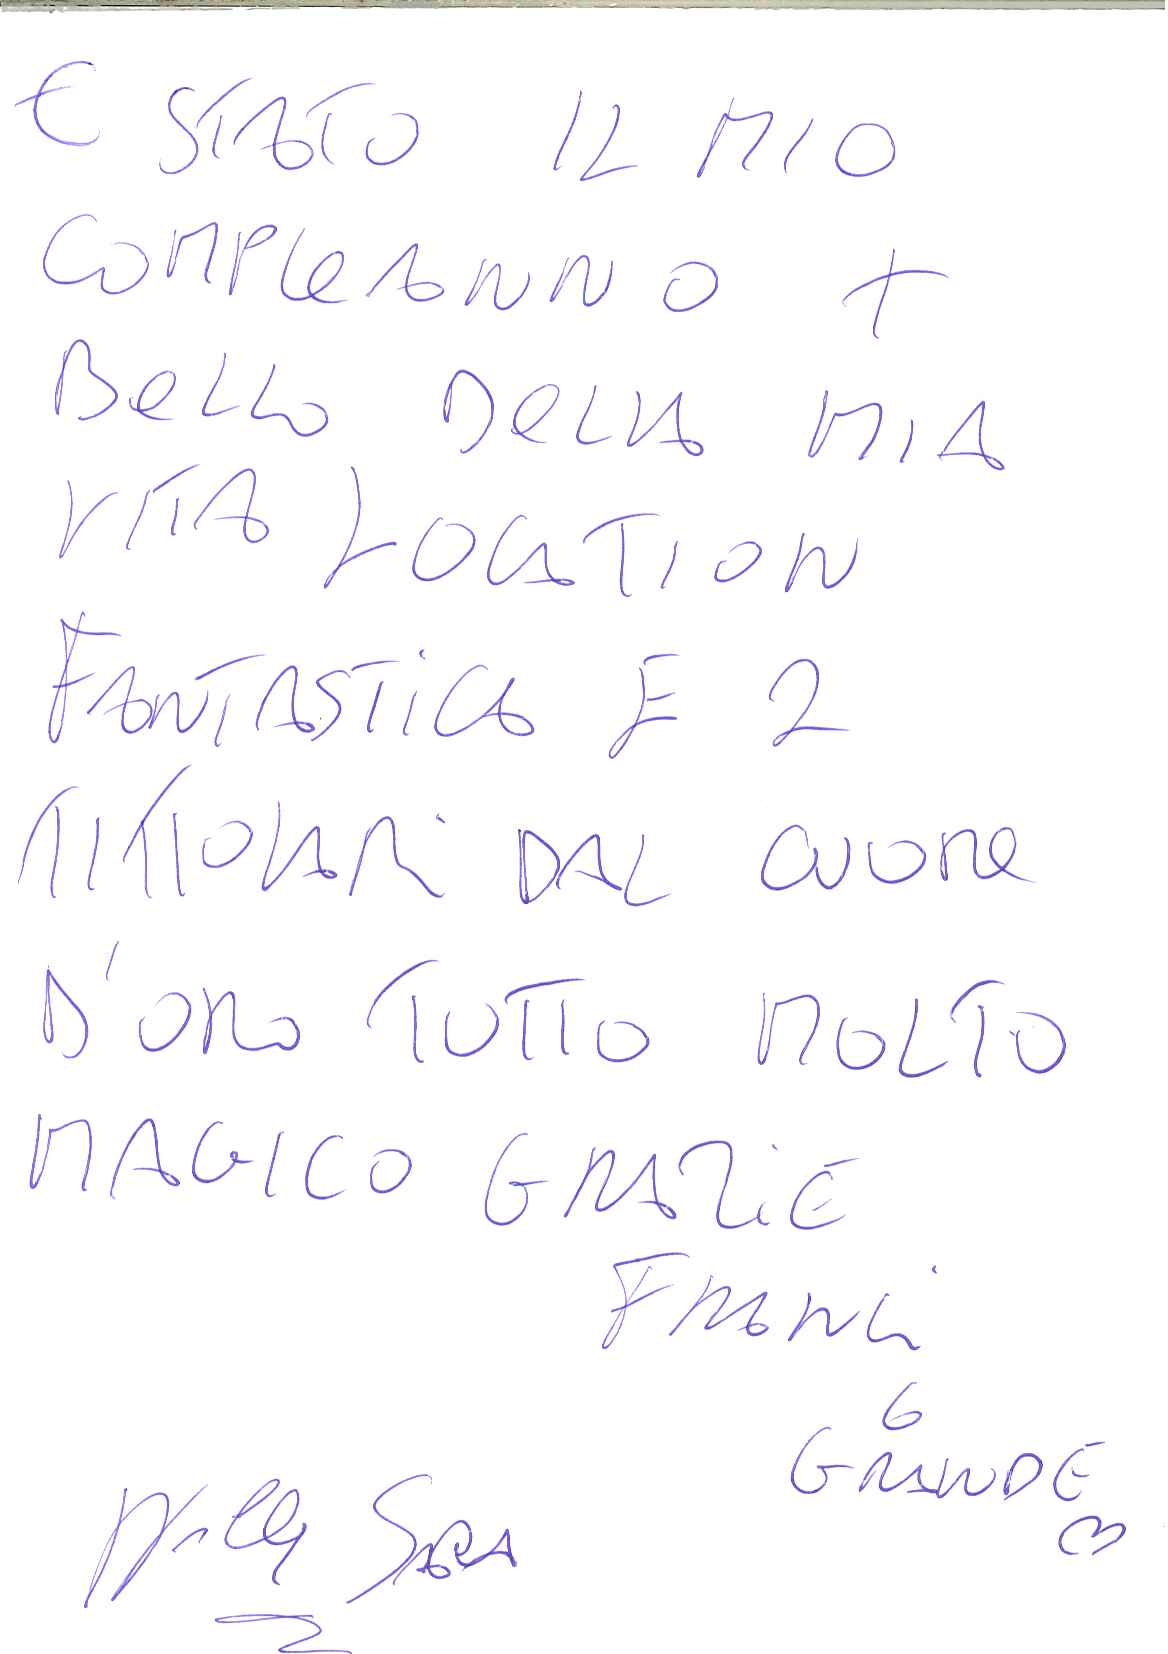 E STATO IL MIO
COMPLEANNO +
BELLO DELLA MIA
VITA LOCATION
FANTASTICA E 2
TITTOLARI DAL CUORE
D'ORO TUTTO MOLTO
MAGICO GRAZIE
FRANCI
6
GRANDE
Willy SARA